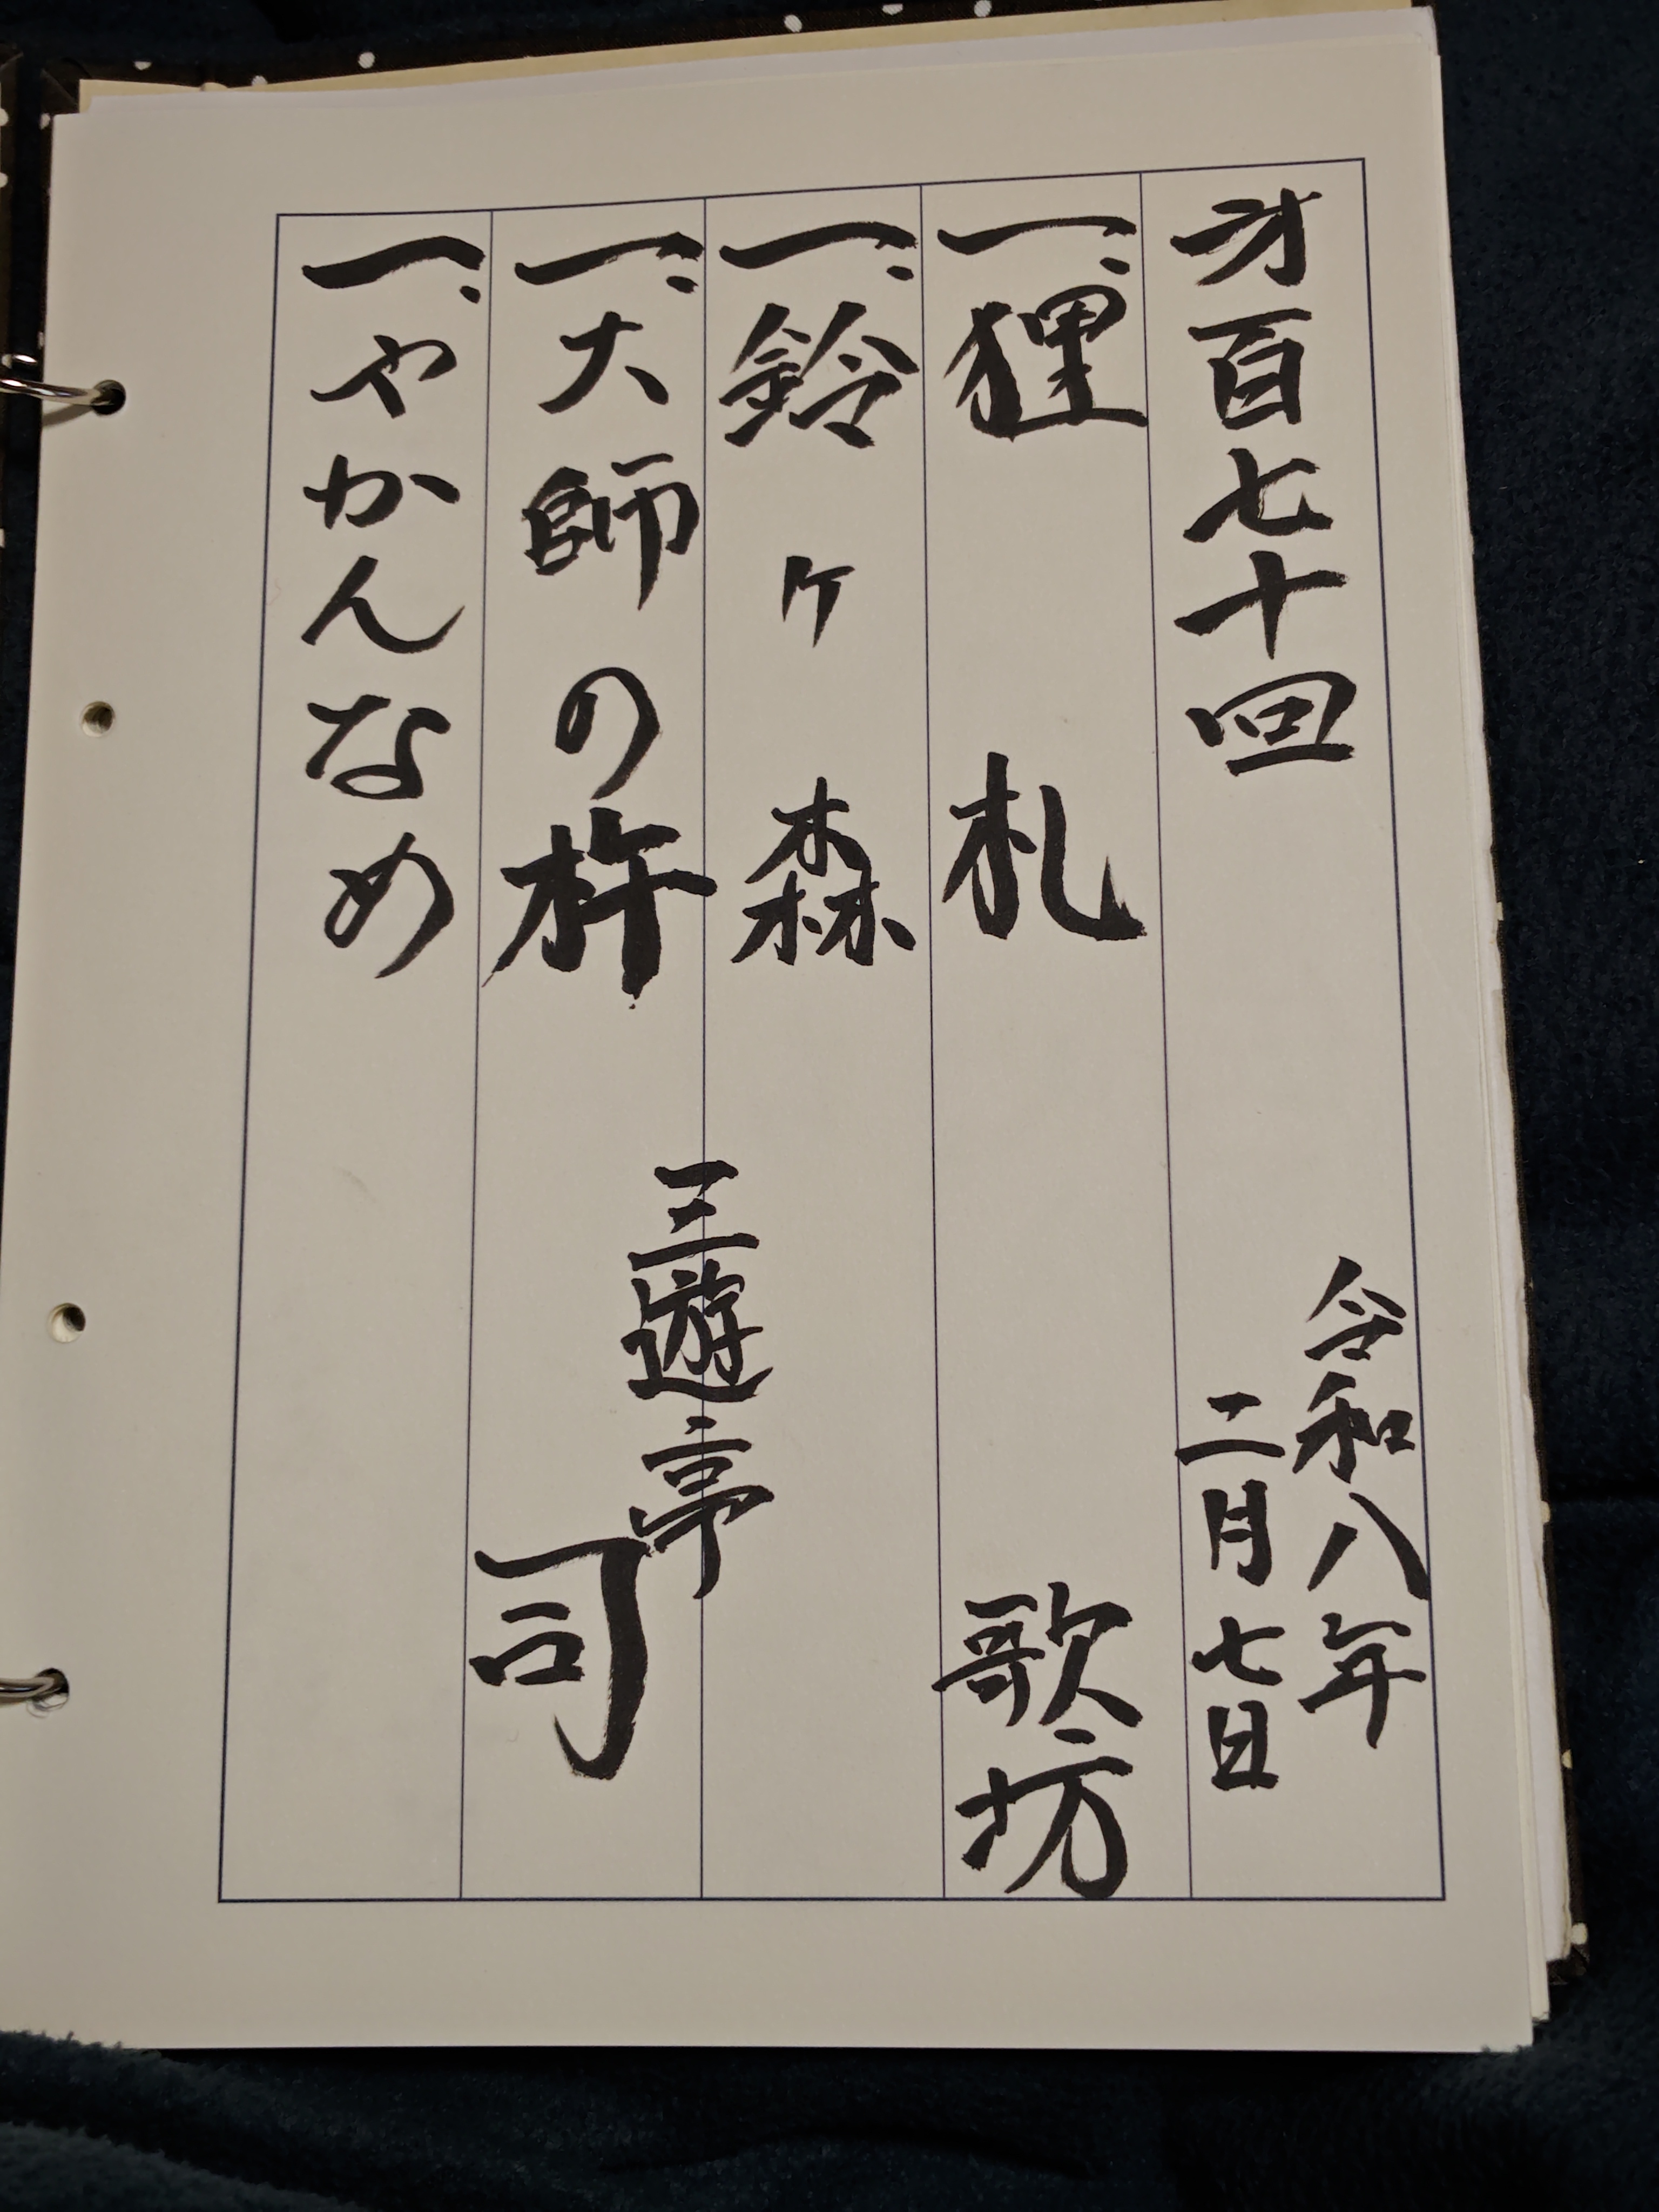 才百七十回
令和八年
二月七日
一、狸 札 歌坊
一、鈴ヶ森
一、大師の杵
三遊亭司
一、やかんなめ